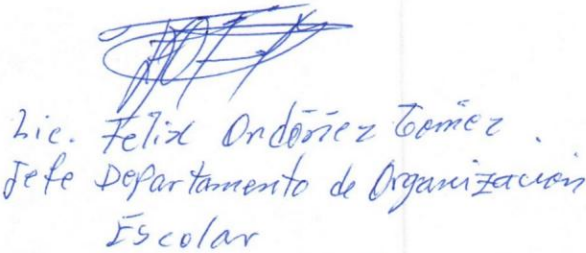 Lic. Felix Ordóñez Gómez.
Jefe Departamento de Organización
Escolar